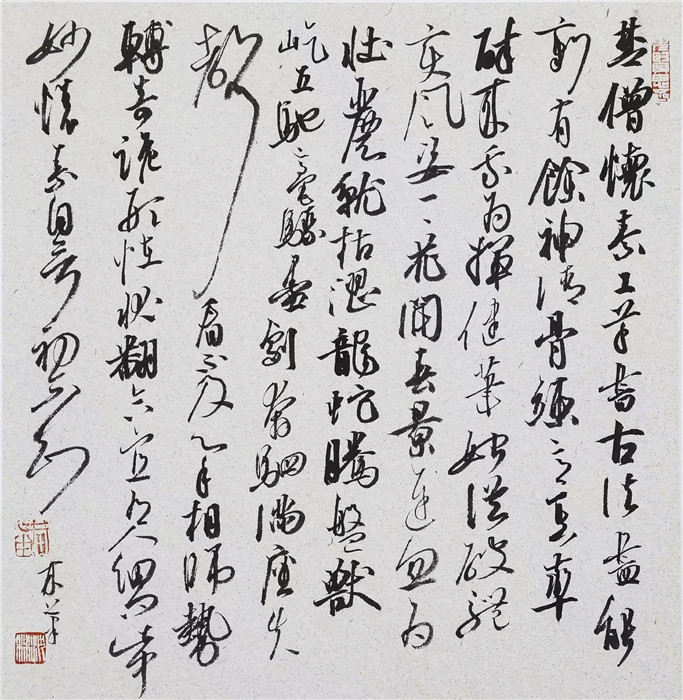 楚僧懷素工草書古法盡能
新有餘神清骨竦意真率
醉來我为揮健筆始從破體
變風姿一一花開春景遲忽为
壯麗就枯澀龍蛇騰盤獸
屹立馳毫驟墨劇奔駟滿座失
聲看不及心手相師勢
轉奇詭形怪狀翻合宜人人細問此中
妙懷素自言初不知